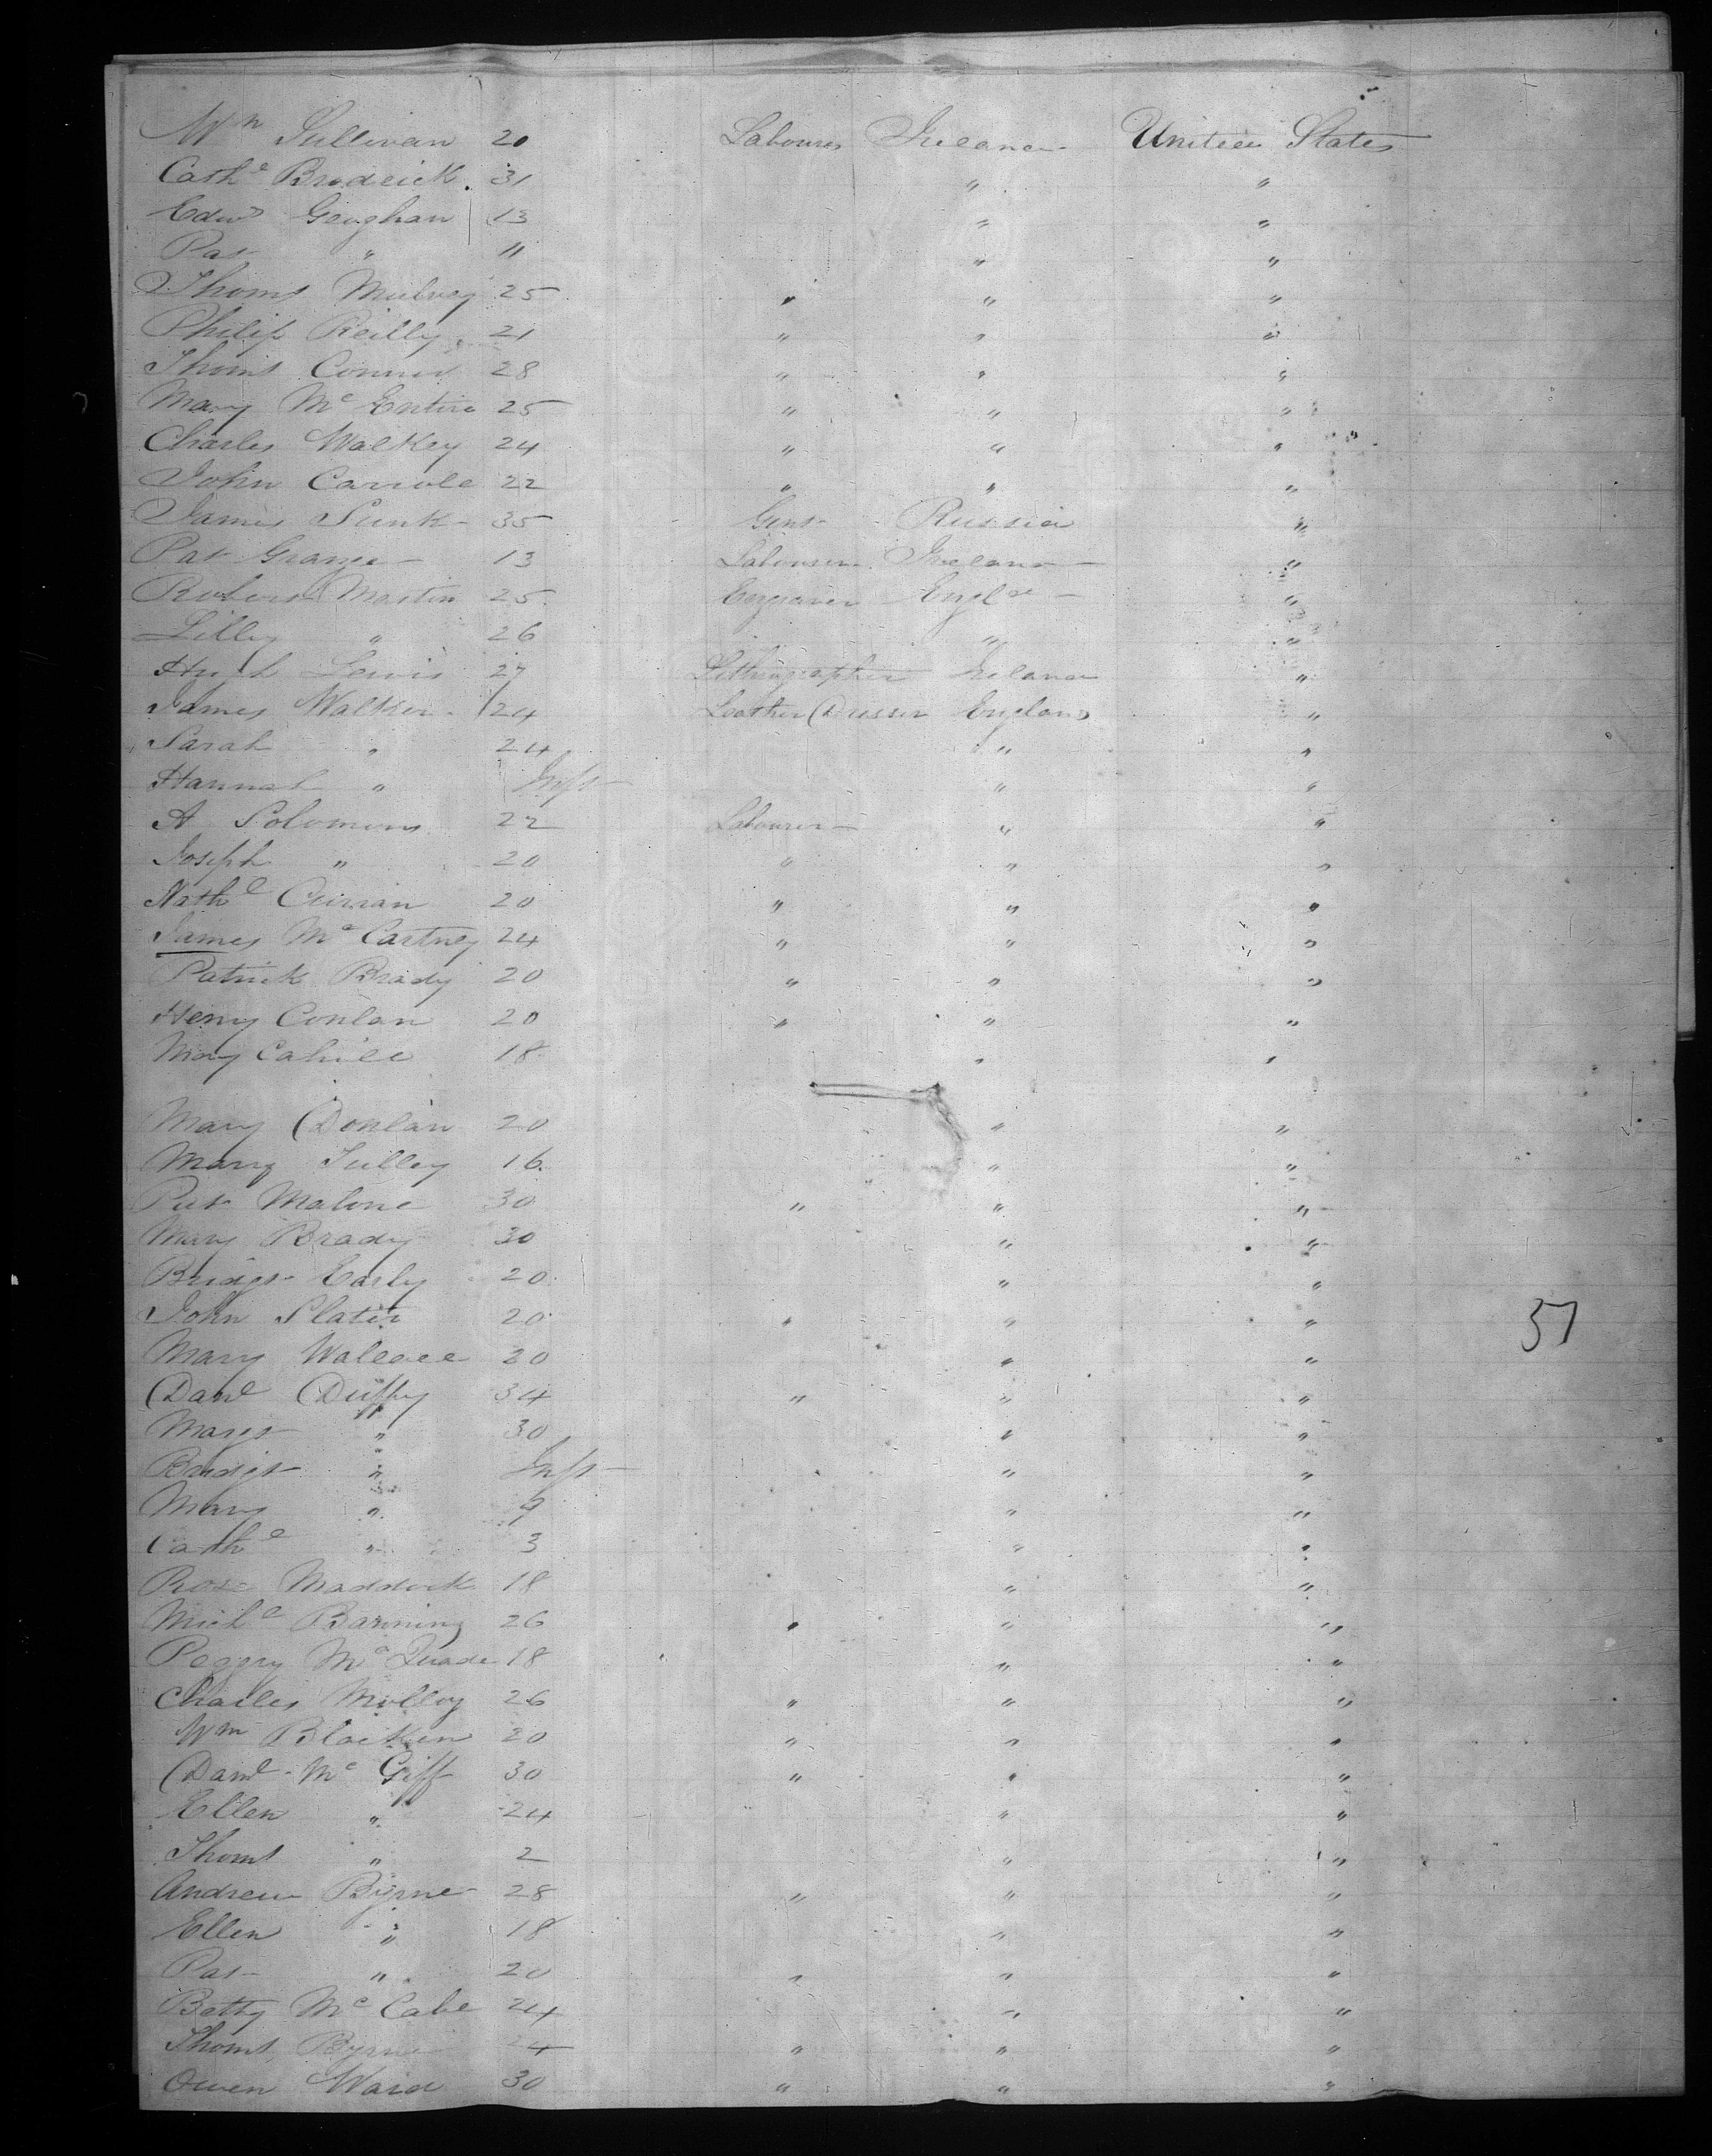 Wm Sullivan 20 Labourer Ireland United States
Cathe Brodrick 31 " "
Edwd Geoghan 13 " "
Pat " 11 " "
Thoms Mulvey 25 " " "
Philip Reilly 21 " " "
Thoms Connor 28 " " "
Mary McEntire 25 " " "
Charles Walkey 24 " " "
John Carrole 22 " " "
James Sunk 35 Gent Russia "
Pat Grange 13 Labourer Ireland "
Robert Martin 25 Engraver Engld "
Lilly " 26 " "
Hugh Lewis 27 Lithographer Ireland "
James Walker 24 Leather Dresser England "
Sarah " 24 " "
Hannah " Inft " "
A Solomons 22 Labourer " "
Joseph " 20 " " "
Nathl Curran 20 " " "
James McCartney 24 " " "
Patrick Brady 20 " " "
Henry Conlan 20 " " "
Mary Cahill 18 " "
Mary Donlan 20 " "
Mary Tulley 16 " "
Pat Malone 30 " " "
Mary Brady 30 " "
Bridgt Early 20 " "
John Slater 20 " " "
Mary Wallace 20 " "
Danl Duffy 34 " " "
Margt " 30 " "
Bridgt " Inft " "
Mary " 9 " "
Cathe " 3 " "
Rose Maddock 18 " "
Michl Banning 26 " " "
Peggy McQuade 18 " "
Charles Molloy 26 " " "
Wm Blacken 20 " " "
Danl McGiff 30 " " "
Ellen " 24 " "
Thoms " 2 " "
Andrew Byrne 28 " " "
Ellen " 18 " "
Pat " 20 " " "
Betty McCabe 24 " "
Thoms Byrne 24 " " "
Owen Ward 30 " " "
57